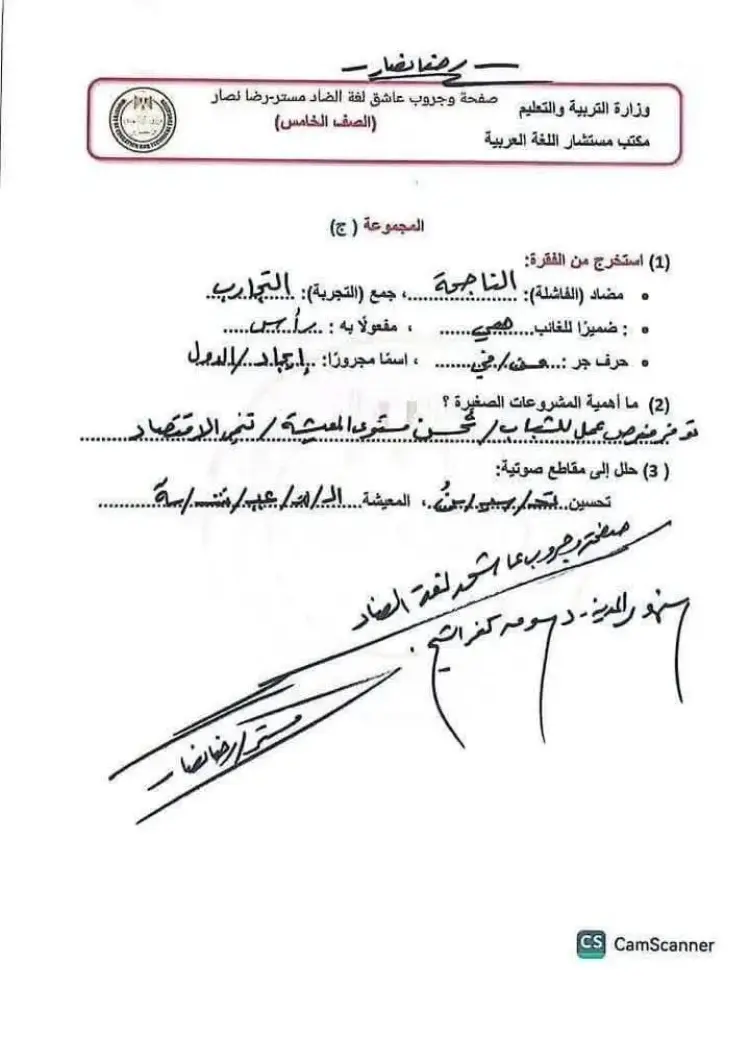 — رضا نصار —
صفحة وجروب عاشق لغة الضاد مستر-رضا نصار
(الصف الخامس)
وزارة التربية والتعليم
مكتب مستشار اللغة العربية
المجموعة ( ج)
(1) استخرج من الفقرة:
• مضاد (الفاشلة): الناجحة ، جمع (التجربة): التجارب
• : ضميرًا للغائب هي ، مفعولًا به : رأس
• حرف جر : عن/في ، اسمًا مجرورًا: إيجاد/الدول
(2) ما أهمية المشروعات الصغيرة ؟
توفر فرص عمل للشباب/تحسن مستوى المعيشة/تنمي الاقتصاد
(3 ) حلل إلى مقاطع صوتية:
تحسين تحـ/سيـ/نُ ، المعيشة الـ/مَـ/عيـ/شـَ/ـة
صفحة وجروب عاشق لغة الضاد
سنهور المدينة - دسوق كفر الشيخ
مستر/رضا نصار
CS CamScanner